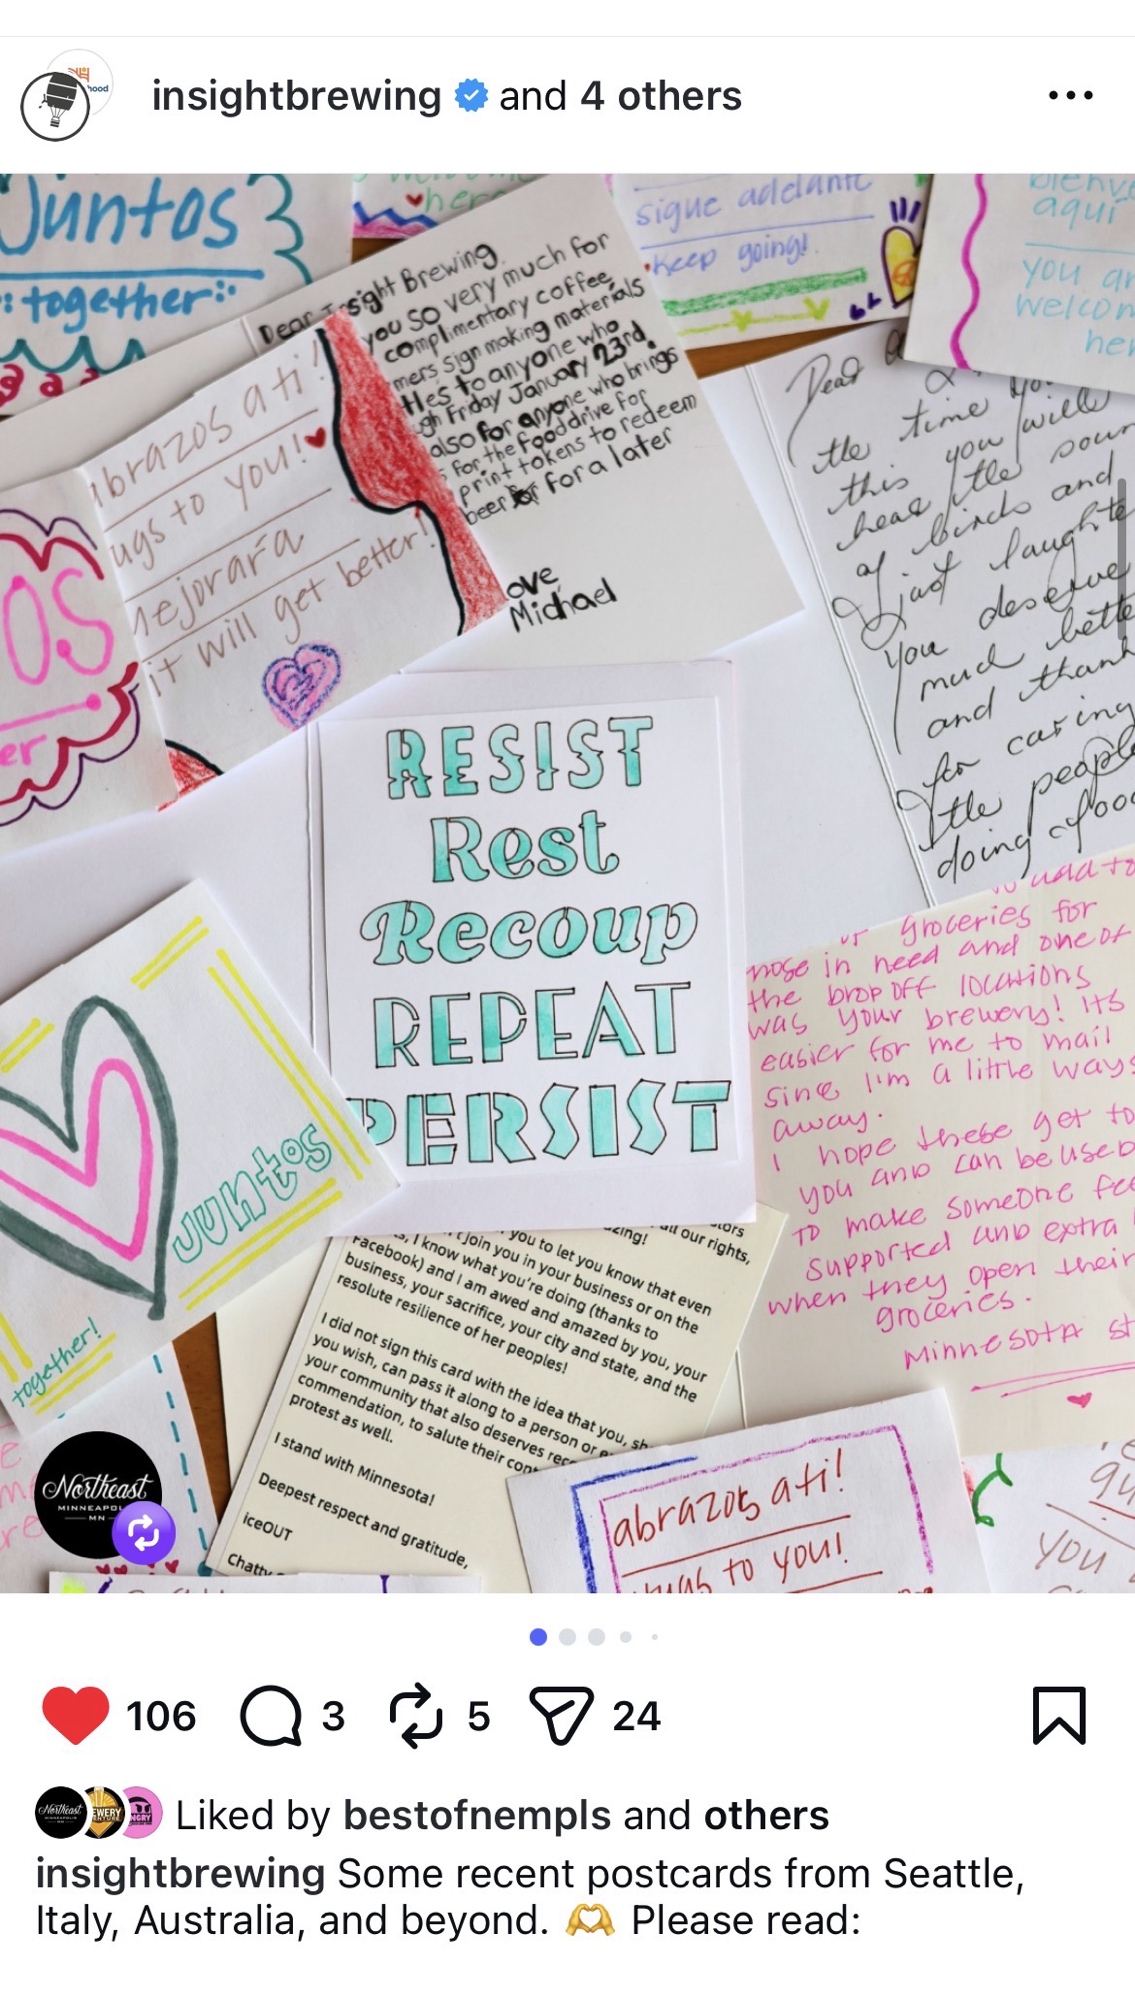 hood
insightbrewing and 4 others
Juntos
together
here
sigue adelante
Keep going!
bienve
aquí
you ar
welcom
her
Dear Insight Brewing
you so very much for
complimentary coffee,
mers sign making materials
to anyone who
gh Friday January 23rd.
also for anyone who brings
s for the food drive for
print tokens to redeem
beer for a later
ove,
Michael
abrazos a ti!
ugs to you!
mejorará
it will get better!
OS
er
Dear
the time you
this you will
hear the soun
of birds and
just laughte
you deserve
much bette
and thank
for caring
the people
doing good
groceries for
hose in need and one of
the drop off locations
was your brewery! Its
easier for me to mail
since I'm a little ways
away.
I hope these get to
you and can be used
to make someone fee
supported and extra
when they open their
groceries.
Minnesota st
RESIST
Rest
Recoup
REPEAT
PERSIST
Juntos
together!
zing!
all our rights,
you to let you know that even
t join you in your business or on the
s, I know what you're doing (thanks to
Facebook) and I am awed and amazed by you, your
business, your sacrifice, your city and state, and the
resolute resilience of her peoples!
I did not sign this card with the idea that you, sh
you wish, can pass it along to a person or
your community that also deserves rec
commendation, to salute their con
protest as well.
I stand with Minnesota!
Deepest respect and gratitude,
iceOUT
Chatty
abrazos a ti!
hugs to you!
you
Northeast
MINNEAPOL
MN
106 3 5 24
Liked by bestofnempls and others
insightbrewing Some recent postcards from Seattle,
Italy, Australia, and beyond. 🫶 Please read: